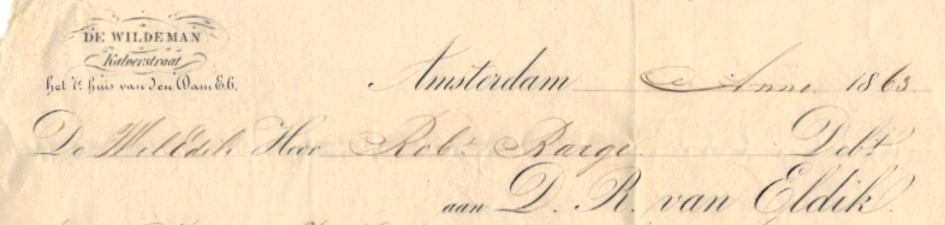 DE WILDEMAN
Kalverstraat
het 7e huis van den Dam E.6.
Amsterdam Anno 1863.
De WelEdele Heer Robt Barge Debt
aan D. R. van Eldik.